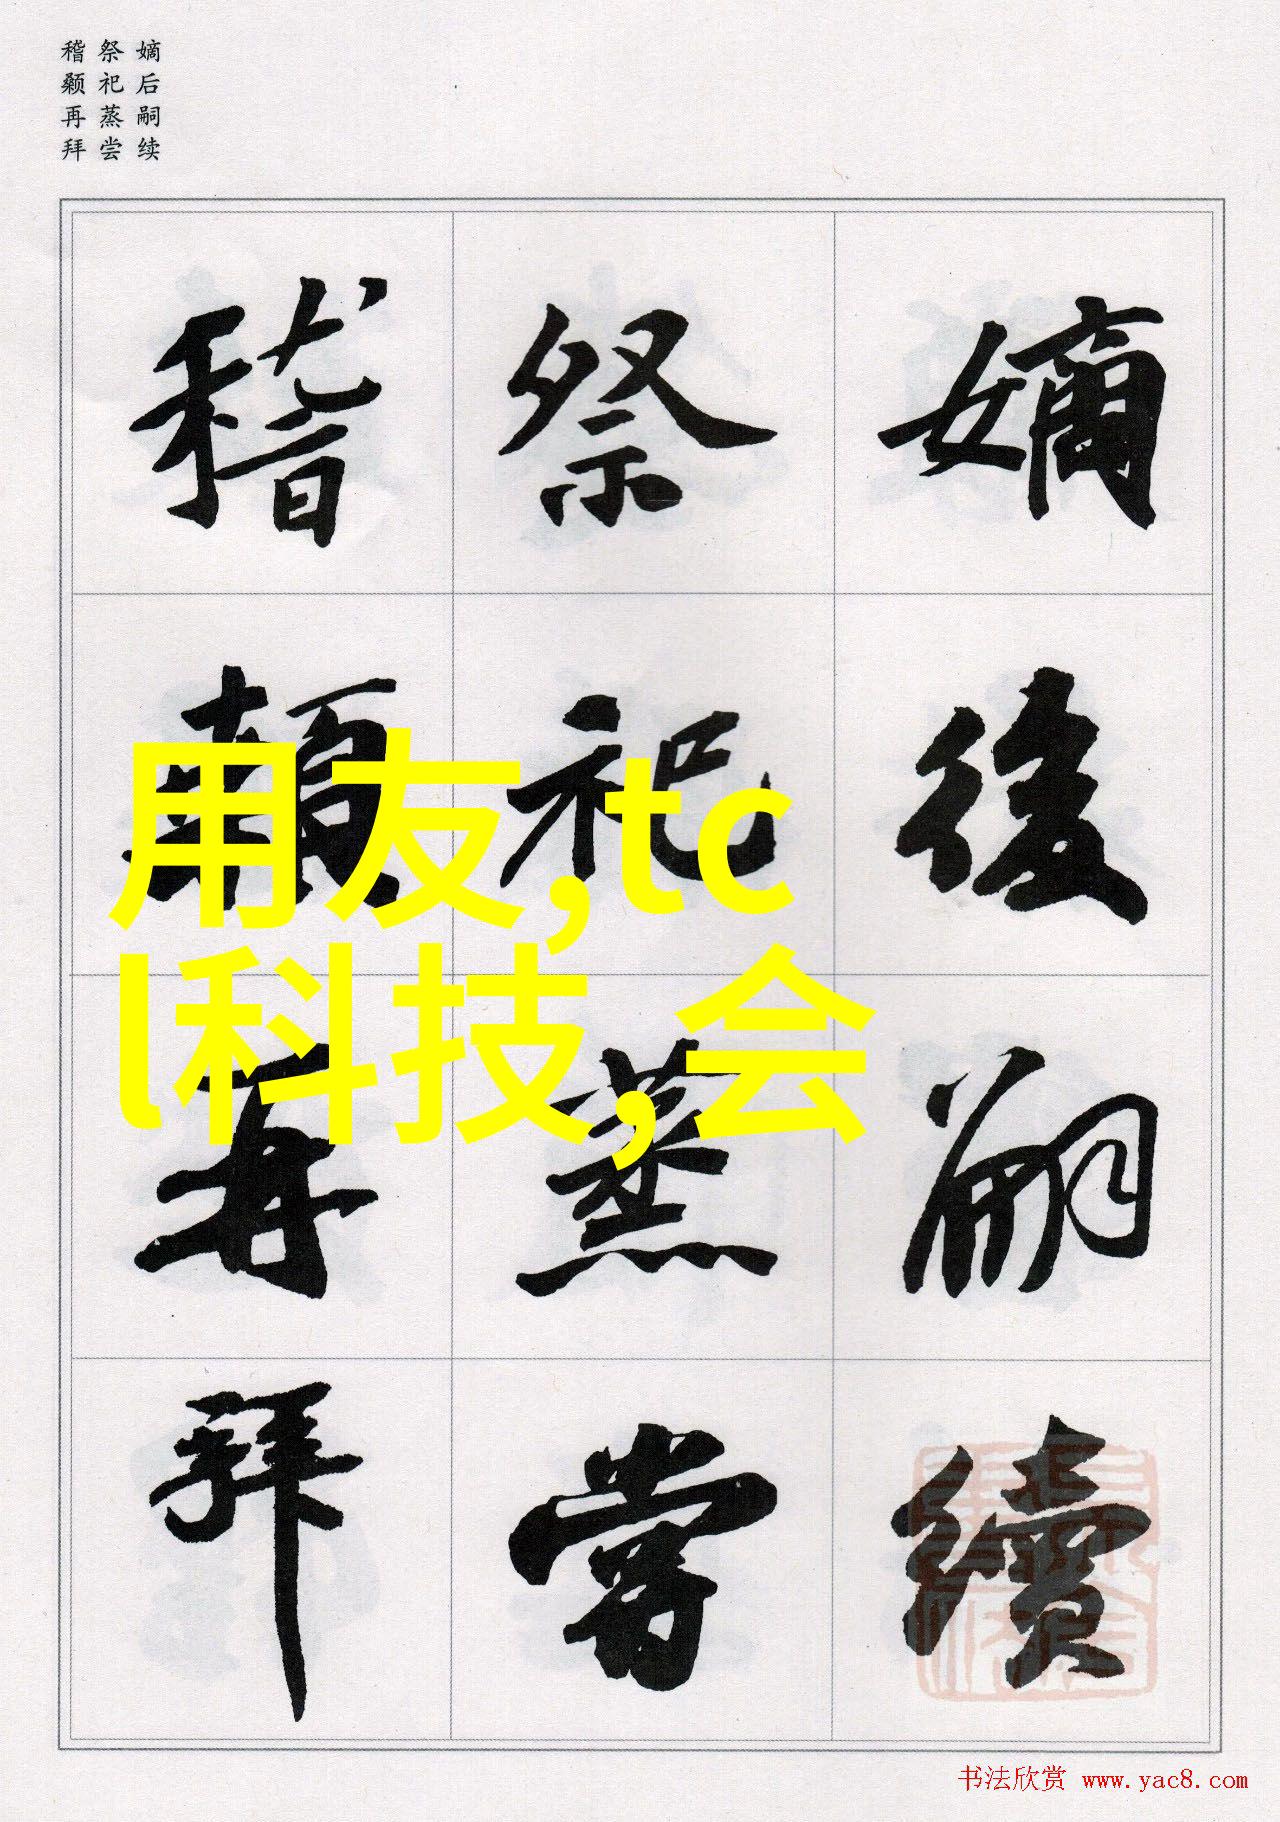 嫡后嗣续
祭祀蒸尝
稽颡再拜
嫡後嗣續
祭祀蒸嘗
稽顙再拜
用友,tc
l科技,会
书法欣赏 www.yac8.com